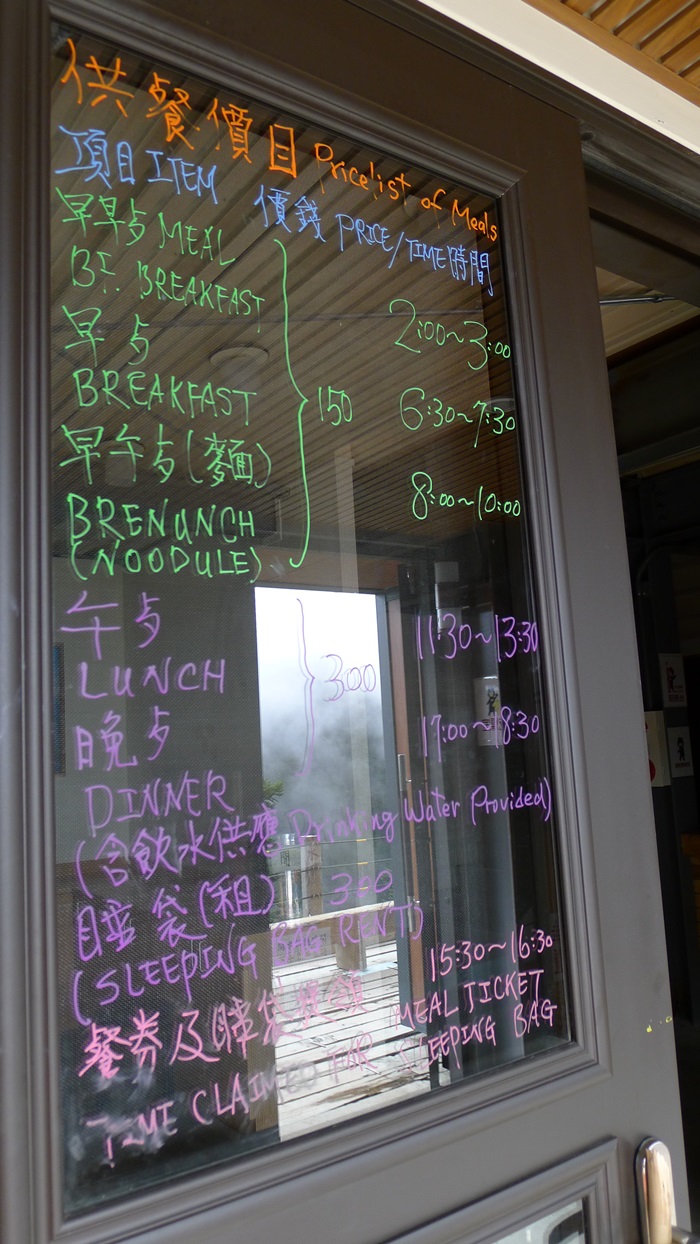 供餐價目 Pricelist of Meals
項目 ITEM 價錢 PRICE/TIME 時間
早早歺 MEAL
BF. BREAKFAST 2:00~3:00
早歺
BREAKFAST 150 6:30~7:30
早午歺(麵)
BRENUNCH 8:00~10:00
(NOODULE)
午歺 11:30~13:30
LUNCH 300
晚歺 17:00~18:30
DINNER
(含飲水供應 Drinking Water Provided)
睡袋(租) 300
(SLEEPING BAG RENT)
15:30~16:30
餐券及睡袋發領 MEAL TICKET
TIME CLAIMED FOR SLEEPING BAG